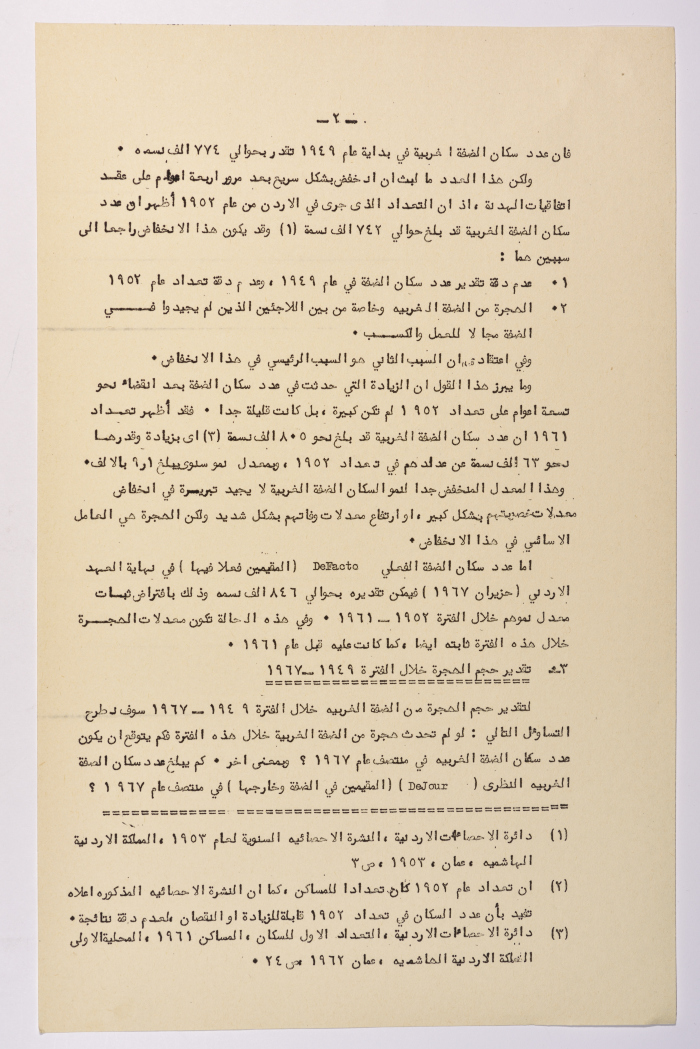 – ٢ –
فان عدد سكان الضفة الغربية في بداية عام ١٩٤٩ تقدر بحوالي ٧٧٤ الف نسمه .
ولكن هذا العدد ما لبث ان انخفض بشكل سريع بعد مرور اربعة اعوام على عقد
اتفاقيات الهدنة ، اذ ان التعداد الذى جرى في الاردن من عام ١٩٥٢ أظهر ان عدد
سكان الضفة الغربية قد بلغ حوالي ٧٤٢ الف نسمة (١) وقد يكون هذا الانخفاض راجعا الى
سببين هما :
١ . عدم دقة تقدير عدد سكان الضفة في عام ١٩٤٩ ، وعدم دقة تعداد عام ١٩٥٢
٢ . الهجرة من الضفة الغربيه وخاصة من بين اللاجئين الذين لم يجيدوا فــي
الضفة مجالا للعمل والكسـب .
وفي اعتقادى ان السبب الثاني هو السبب الرئيسي في هذا الانخفاض .
وما يبرز هذا القول ان الزيادة التي حدثت في عدد سكان الضفة بعد انقضاء نحو
تسعة اعوام على تعداد ١٩٥٢ لم تكن كبيرة ، بل كانت قليلة جدا . فقد أظهر تعـداد
١٩٦١ ان عدد سكان الضفة الغربية قد بلغ نحو ٨٠٥ الف نسمة (٣) اى بزيادة وقدرهـا
نحو ٦٣ الف نسمة عن عددهم في تعداد ١٩٥٢ ، وبمعدل نمو سنوى يبلغ ٩ر١ بالالف .
وهذا المعدل المنخفض جدا لنمو السكان الضفة الغربية لا يجيد تبريرة في انخفاض
معدلات خصوبتهم بشكل كبير ، او ارتفاع معدلات وفاتهم بشكل شديد ولكن الهجرة هي العامل
الاساسي في هذا الانخفاض .
اما عدد سكان الضفة الفعلي DeFacto (المقيمين فعلا فيها ) في نهاية العهـد
الاردني (حزيران ١٩٦٧ ) فيمكن تقديره بحوالي ٨٤٦ الف نسمه وذلك بافتراض ثبـات
معدل نموهم خلال الفترة ١٩٥٢ – ١٩٦١ . وفي هذه الحالة تكون معدلات الهجـرة
خلال هذه الفترة ثابته ايضا ، كما كانت عليه قبل عام ١٩٦١ .
٣– تقدير حجم الهجرة خلال الفترة ١٩٤٩ – ١٩٦٧
لتقدير حجم الهجرة من الضفة الغربيه خلال الفترة ١٩٤٩ – ١٩٦٧ سوف نطرح
التساؤل التالي : لو لم تحدث هجرة من الضفة الغربية خلال هذه الفترة فكم يتوقع ان يكون
عدد سكان الضفة الغربيه في منتصف عام ١٩٦٧ ؟ وبمعنى اخر . كم يبلغ عدد سكان الضفة
الغربيه النظرى ( DeJour ) (المقيمين في الضفة وخارجها ) في منتصف عام ١٩٦٧ ؟
(١) دائرة الاحصاءات الاردنية ، النشرة الاحصائيه السنوية لعام ١٩٥٣ ، المملكة الاردنية
الهاشميه ، عمان ، ١٩٥٣ ، ص ٣
(٢) ان تعداد عام ١٩٥٢ كان تعدادا للمساكن ، كما ان النشرة الاحصائيه المذكوره اعلاه
تفيد بأن عدد السكان في تعداد ١٩٥٢ قابلة للزيادة او النقصان ، لعدم دقة نتائجة .
(٣) دائرة الاحصاءات الاردنية ، التعداد الاول للسكان ، المساكن ١٩٦١ ، المحلية الاولى
المملكة الاردنية الهاشميه ، عمان ١٩٦٢ ، ص ٢٤ .